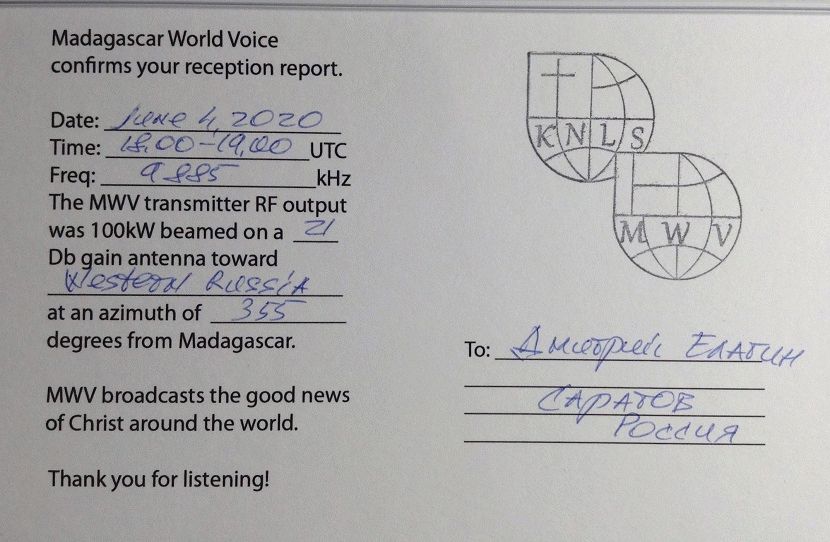 Madagascar World Voice
confirms your reception report.
Date: June 4, 2020
Time: 18.00-19.00 UTC
Freq: 9885 kHz
The MWV transmitter RF output
was 100kW beamed on a 21
Db gain antenna toward
Western Russia
at an azimuth of 355
degrees from Madagascar.
MWV broadcasts the good news
of Christ around the world.
Thank you for listening!
KNLS
MWV
To: Дмитрий Елагин
Саратов
Россия